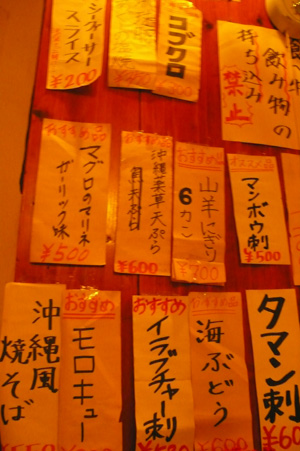 シークヮーサー
スライス
¥200
コブクロ
飲み物の
持ち込み
禁止
おすすめ品
マグロのマリネ
ガーリック味
¥500
沖縄薬草天ぷら
¥600
おすすめ品
山羊にぎり
6カン
¥700
オススメ品
マンボウ刺
¥500
沖縄風
焼そば
おすすめ
モロキュー
おすすめ
イラブチャー刺
おすすめ品
海ぶどう
タマン刺